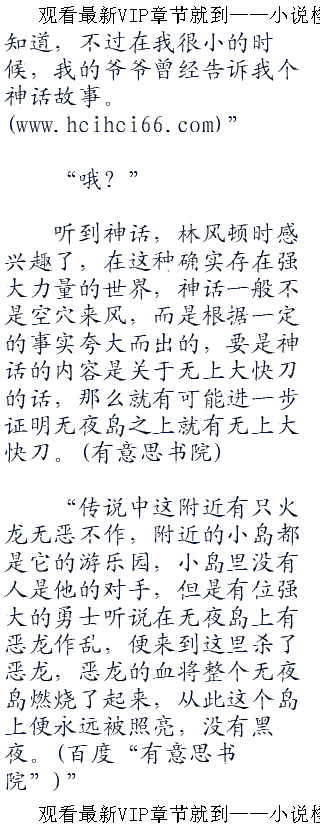 观看最新VIP章节就到——小说
知道，不过在我很小的时
候，我的爷爷曾经告诉我个
神话故事。
(www.hcihci66.com)”
“哦？”
听到神话，林风顿时感
兴趣了，在这种确实存在强
大力量的世界，神话一般不
是空穴来风，而是根据一定
的事实夸大而出的，要是神
话的内容是关于无上大快刀
的话，那么就有可能进一步
证明无夜岛之上就有无上大
快刀。(有意思书院)
“传说中这附近有只火
龙无恶不作，附近的小岛都
是它的游乐园，小岛里没有
人是他的对手，但是有位强
大的勇士听说在无夜岛上有
恶龙作乱，便来到这里杀了
恶龙，恶龙的血将整个无夜
岛燃烧了起来，从此这个岛
上便永远被照亮，没有黑
夜。(百度“有意思书
院”)”
观看最新VIP章节就到——小说